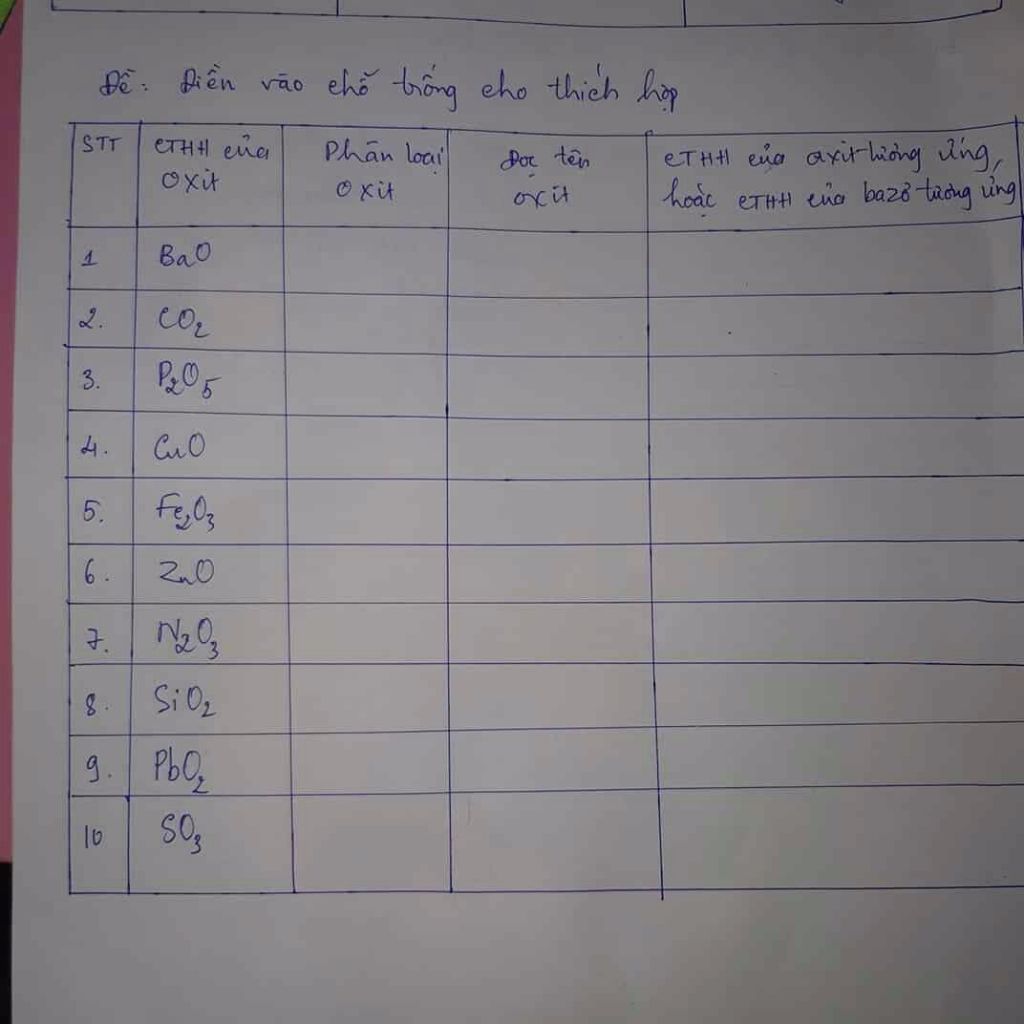 Đề: Điền vào chỗ trống cho thích hợp
STT CTHH của oxit Phân loại oxit Đọc tên oxit CTHH của axit tương ứng, hoặc CTHH của bazơ tương ứng
1 BaO
2. CO₂
3. P₂O₅
4. CuO
5. Fe₂O₃
6. ZnO
7. N₂O₃
8. SiO₂
9. PbO₂
10 SO₃